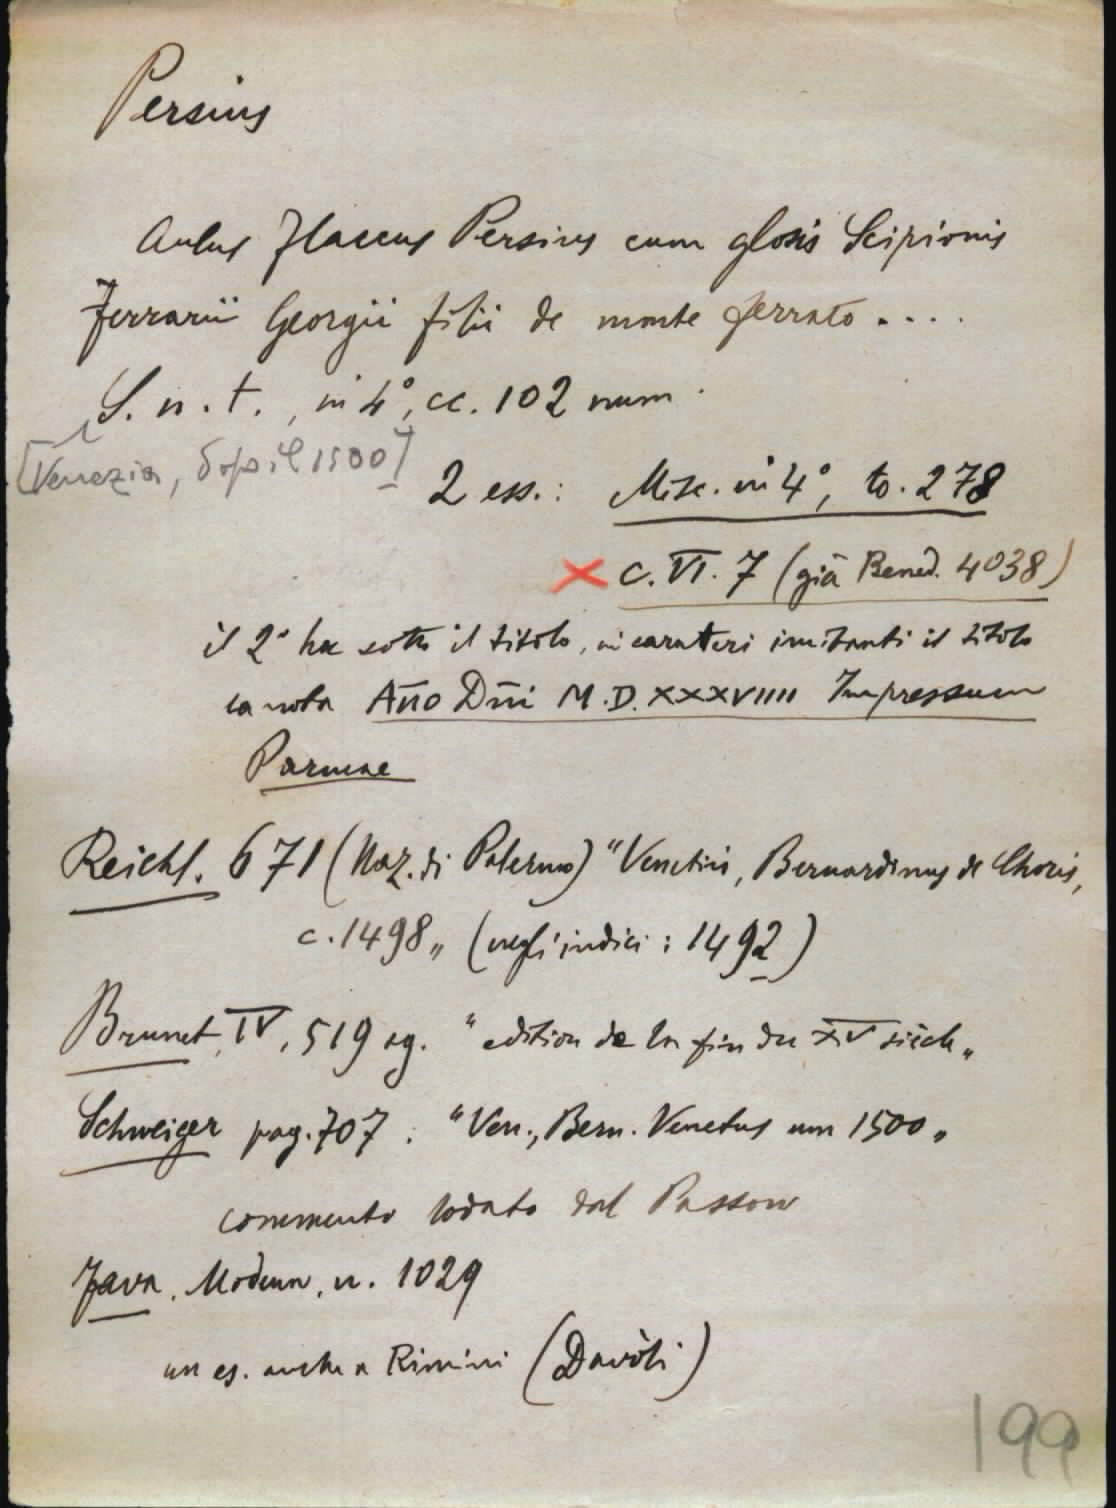 Persius
Aulus Flaccus Persius cum glosis Scipionis
Ferrarii Georgii filii de monte ferrato....
S. n. t., in 4°, cc. 102 num.
[Venezia, dopo il 1500]
2 ess.: Misc. in 4°, to. 278
× C. VI. 7 (già Bened. 4038)
il 2° ha sotto il titolo, in caratteri imitanti il titolo
la nota Año Dñi M.D.XXXVIIII Impressum
Parmae
Reichl. 671 (Naz. di Palermo) "Venetiis, Bernardinus de Choris,
c. 1498" (negli indici: 1492)
Brunet, IV, 519 sg. "edition de la fin du XV siècle"
Schweiger pag. 707: "Ven., Bern. Venetus um 1500"
commento lodato dal Passow
Fava, Modena, n. 1029
un es. anche a Rimini (Davòli)
199